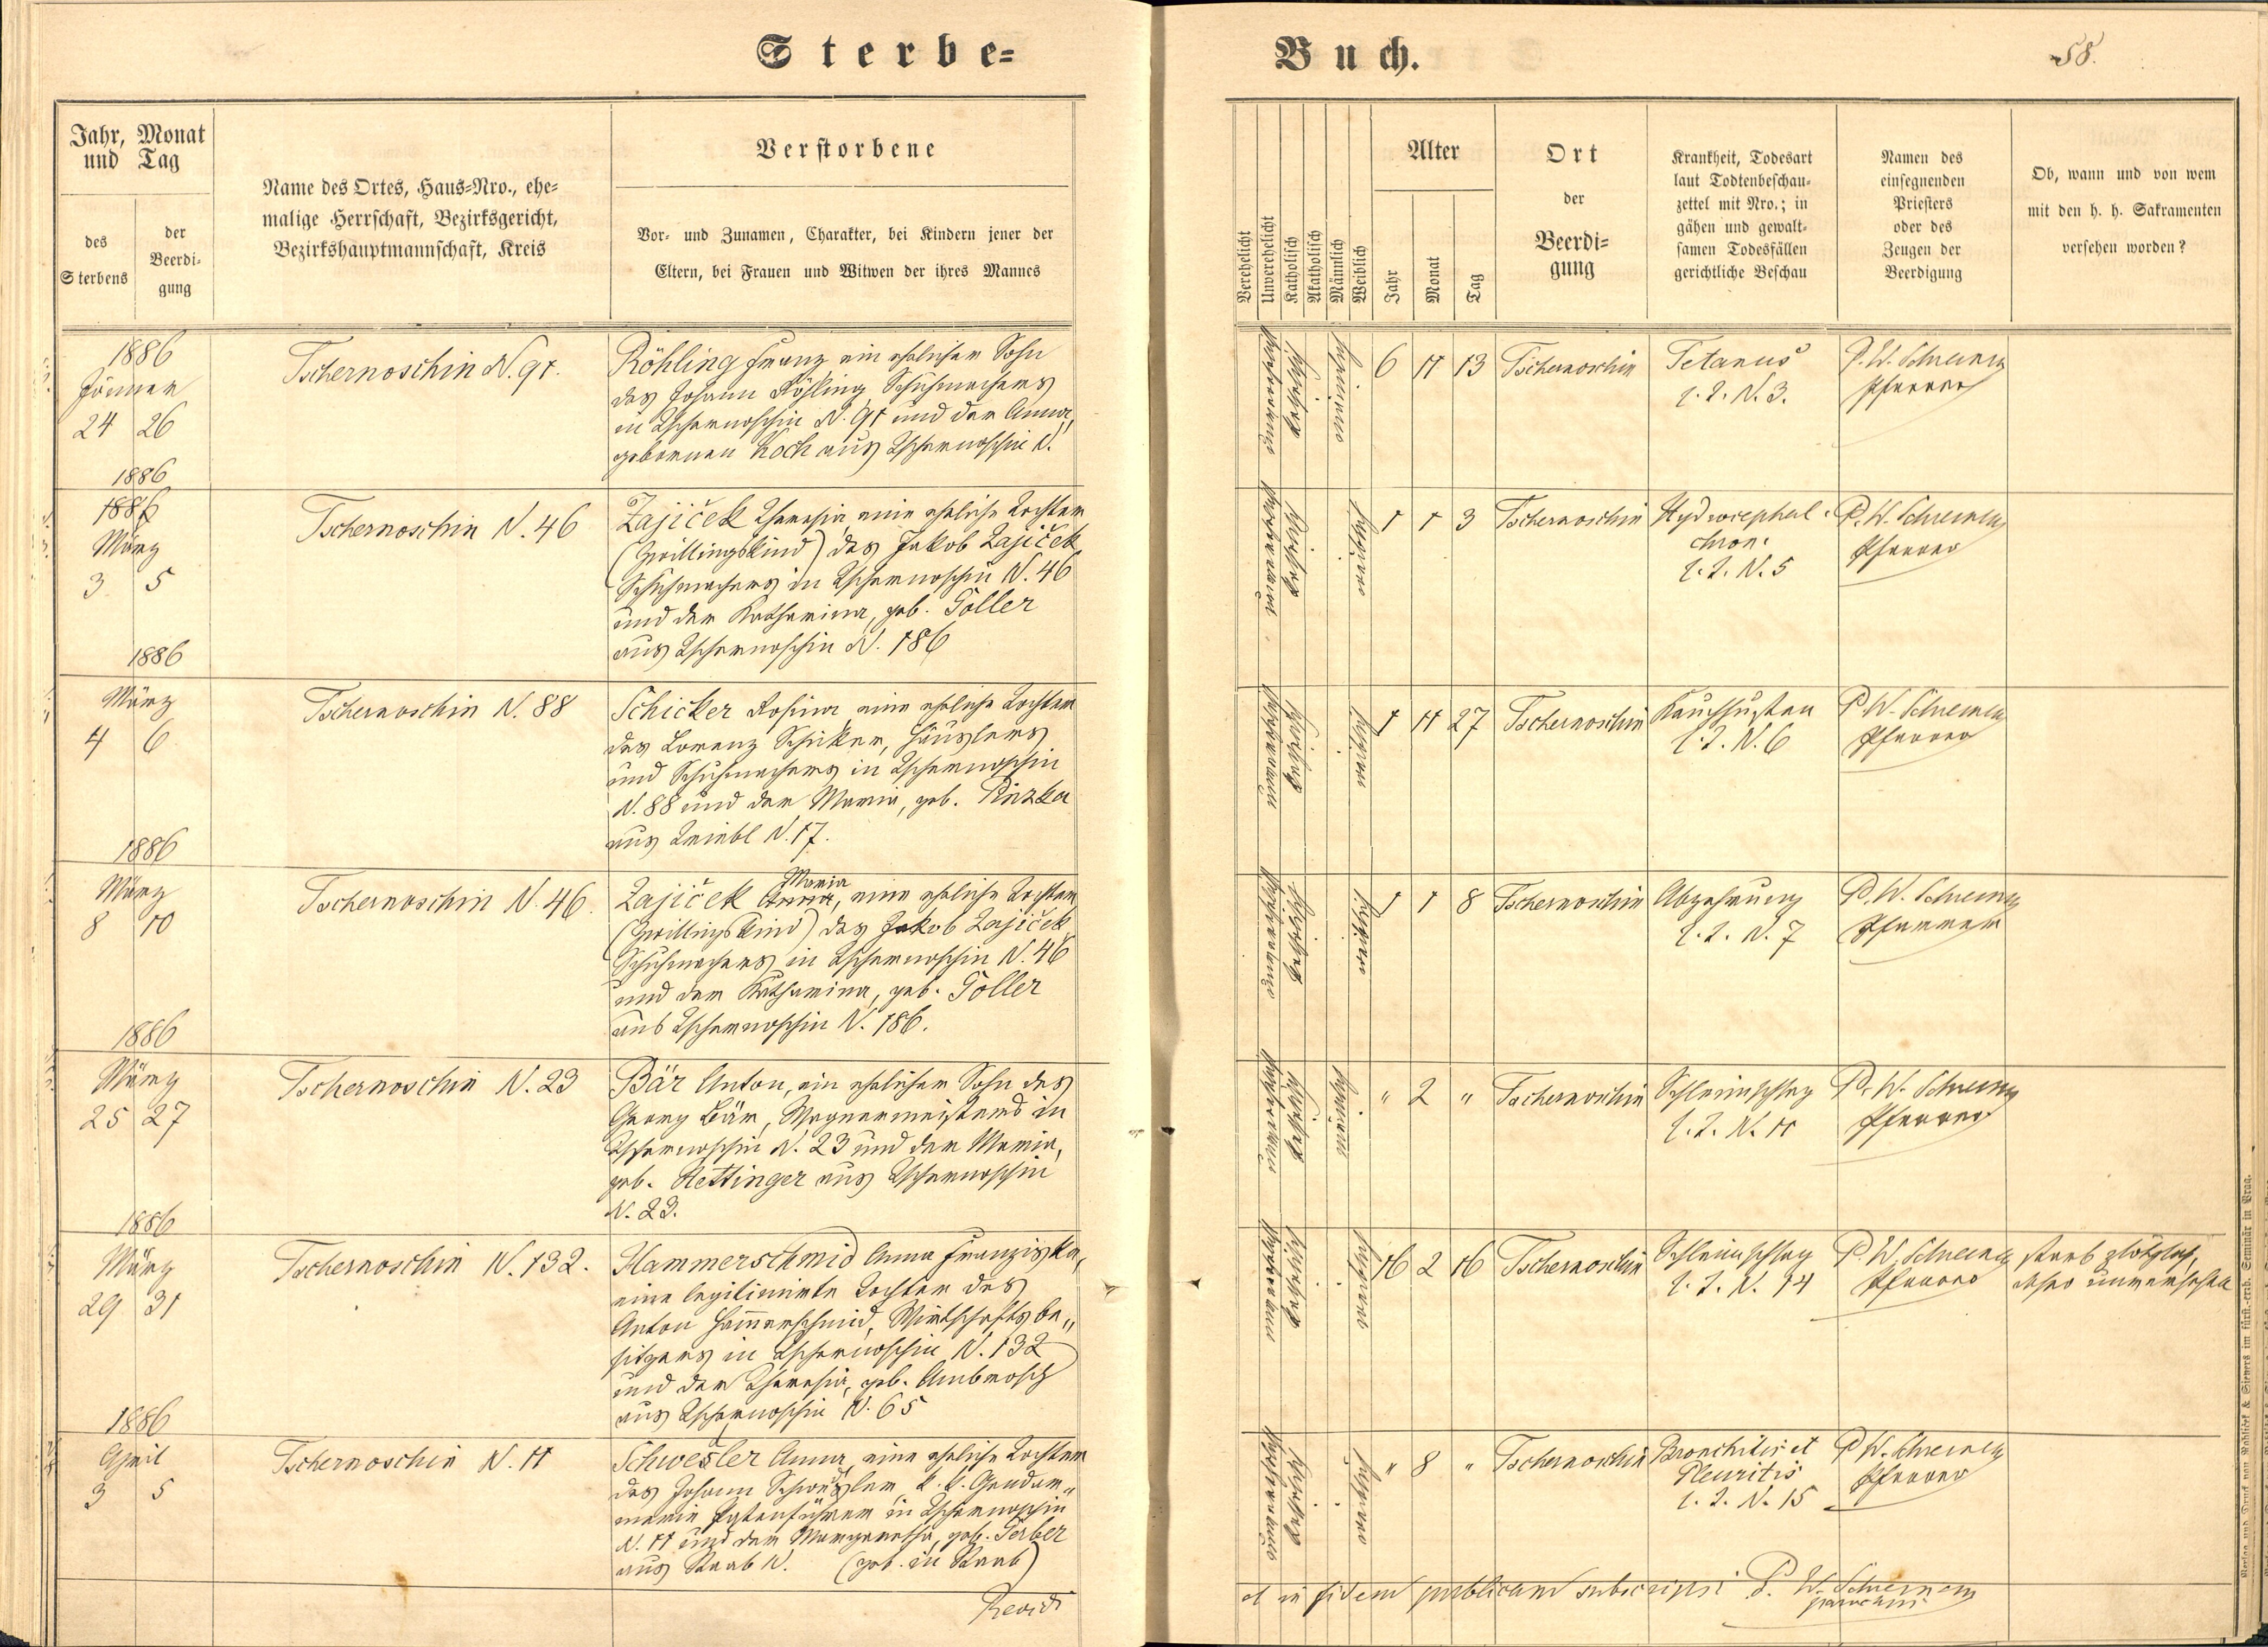 Sterbe=
Buch.
58.
Jahr, Monat
und Tag
des
Sterbens
der
Beerdi-
gung
Name des Ortes, Haus=Nro., ehe=
malige Herrschaft, Bezirksgericht,
Bezirkshauptmannschaft, Kreis
Verstorbene
Vor= und Zunamen, Charakter, bei Kindern jener der
Eltern, bei Frauen und Witwen der ihres Mannes
Verehelicht
Unverehelicht
Katholisch
Akatholisch
Männlich
Weiblich
Alter
Jahr
Monat
Tag
Ort
der
Beerdi=
gung
Krankheit, Todesart
laut Todtenbeschau=
zettel mit Nro.; in
gähen und gewalt=
samen Todesfällen
gerichtliche Beschau
Namen des
einsegnenden
Priesters
oder des
Zeugen der
Beerdigung
Ob, wann und von wem
mit den h. h. Sakramenten
versehen worden?
1886
Jänner
24 26
Tschernoschin N. 91.
Röhling Franz, ein ehelicher Sohn
des Johann Röhling, Schuhmachers
in Tschernoschin N. 91 und der Anna,
gebornen Koch aus Tschernoschin N.
unverehelicht
katholisch
männlich
6 11 13
Tschernoschin
Tetanus
l. Z. N. 3.
P. W. Schreiner
Pfarrer
1886
1886
März
3 5
Tschernoschin N. 46
Zajiček Theresia eine eheliche Tochter
(Zwillingskind) des Jakob Zajiček
Schuhmachers in Tschernoschin N. 46
und der Katharina, geb. Toller
aus Tschernoschin N. 186
unverehelicht
katholisch
weiblich
1 1 3
Tschernoschin
Hydrocephal.
chron.
l. Z. N. 5
P. W. Schreiner
Pfarrer
1886
März
4 6
Tschernoschin N. 88
Schicker Rosina, eine eheliche Tochter
des Lorenz Schicker, Häuslers
und Schuhmachers in Tschernoschin
N. 88 und der Maria, geb. Pinzka
aus Triebl N. 17.
unverehelicht
katholisch
weiblich
1 11 27
Tschernoschin
Keuchhusten
l. Z. N. 6
P. W. Schreiner
Pfarrer
1886
März
8 10
Tschernoschin N. 46.
Maria
Zajiček Anna, eine eheliche Tochter
(Zwillingskind) des Jakob Zajiček
Schuhmachers in Tschernoschin N. 46
und der Katharina, geb. Toller
aus Tschernoschin N. 186.
unverehelicht
katholisch
weiblich
1 1 8
Tschernoschin
Abzehrung
l. Z. N. 7
P. W. Schreiner
Pfarrer
1886
März
25 27
Tschernoschin N. 23
Bär Anton, ein ehelicher Sohn des
Georg Bär, Wagnermeisters in
Tschernoschin N. 23 und der Maria,
geb. Hettinger aus Tschernoschin
N. 23.
unverehelicht
katholisch
männlich
" 2 "
Tschernoschin
Schleimschlag
l. Z. N. 11
P. W. Schreiner
Pfarrer
1886
März
29 31
Tschernoschin N. 132.
Hammerschmid Anna Franziska,
eine legitimirte Tochter des
Anton Hammerschmid, Wirtschaftsbe„
sitzers in Tschernoschin N. 132
und der Theresia, geb. Ambrosch
aus Tschernoschin N. 65
unverehelicht
katholisch
weiblich
16 2 16
Tschernoschin
Schleimschlag
l. Z. N. 14
P. W. Schreiner
Pfarrer
starb plötzlich,
also unversehen
1886
April
3 5
Tschernoschin N. 11
Schwesler Anna, eine eheliche Tochter
des Johann Schwesler, k. k. Gendar„
merie Postenführer in Tschernoschin
N. 11 und der Margaretha, geb. Ferber
aus Staab N. (geb. in Staab)
unverehelicht
katholisch
weiblich
" 8 "
Tschernoschin
Bronchitis et
Pleuritis
l. Z. N. 15
P. W. Schreiner
Pfarrer
Revidi
et in fidem publicam subscripsi P. W. Schreiner
parochus